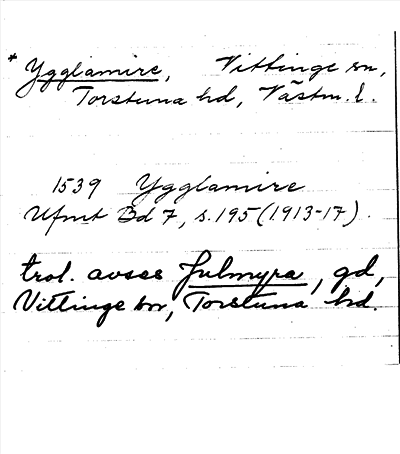 * Ygglamire, Vittinge sn,
Torstuna hd, Västm. l.
1539 Ygglamire
Ufmt Bd 7, s. 195 (1913-17).
trol. avses Fulmyra, gd,
Vittinge sn, Torstuna hd.